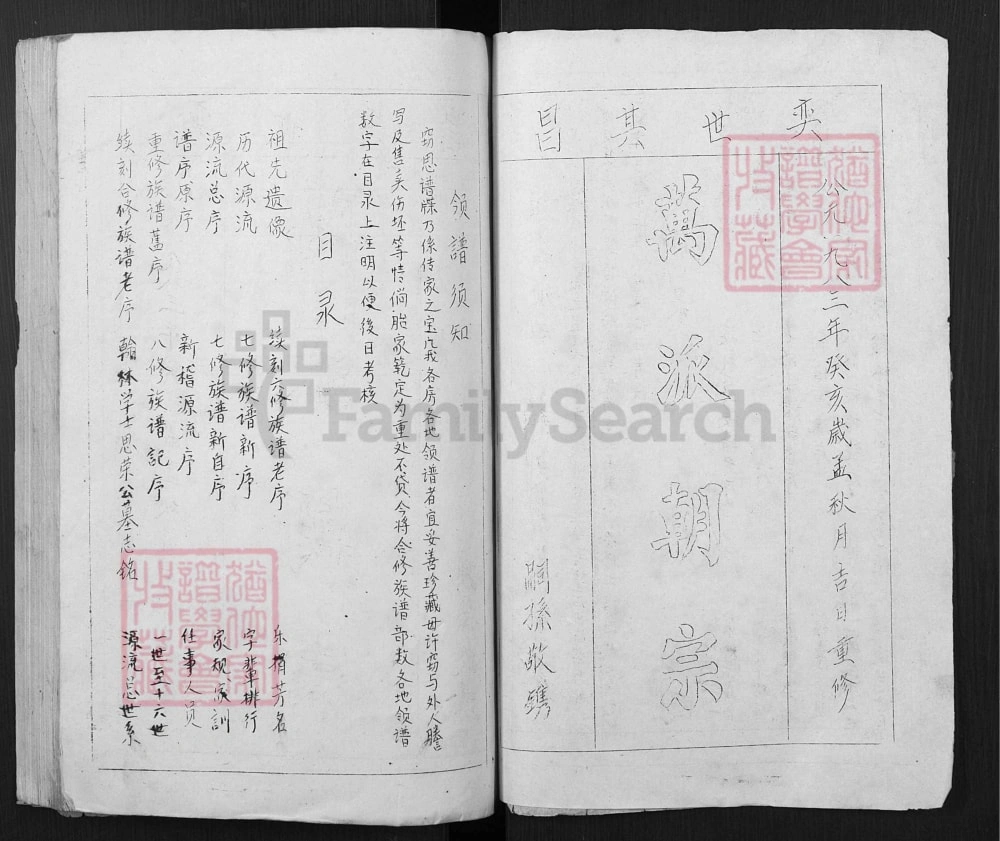 奕世其昌
公元一九八三年癸亥歲孟秋月吉日重修
萬派朝宗
嗣孫敬鐫
猶他家譜學會收藏
领譜须知
窃思谱牒乃係传家之宝凡我各房各地领谱者宜妥善珍藏毋许窃与外人謄
写及售卖伤坯等情倘胎家範定为重处不贷今将合修族谱部数各地领谱
数字在目录上注明以便後日考核
目录
祖先遗像
历代源流
源流总序
谱序原序
重修族谱舊序
续刻合修族谱老序
续刻六修族谱老序
七修族谱新序
七修族谱新自序
新稽源流序
八修族谱記序
翰林学士思荣公墓志铭
乐捐芳名
字輩排行
家规家訓
仕事人员
一世至十六世
源流总世系
猶他家譜學會收藏
FamilySearch